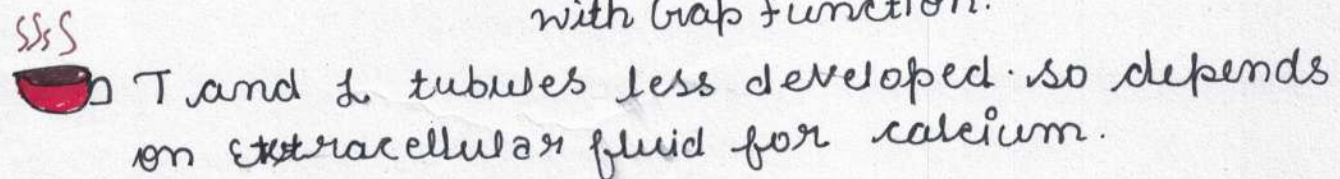 with Gap function.
T and L tubules less developed. so depends
on extracellular fluid for calcium.